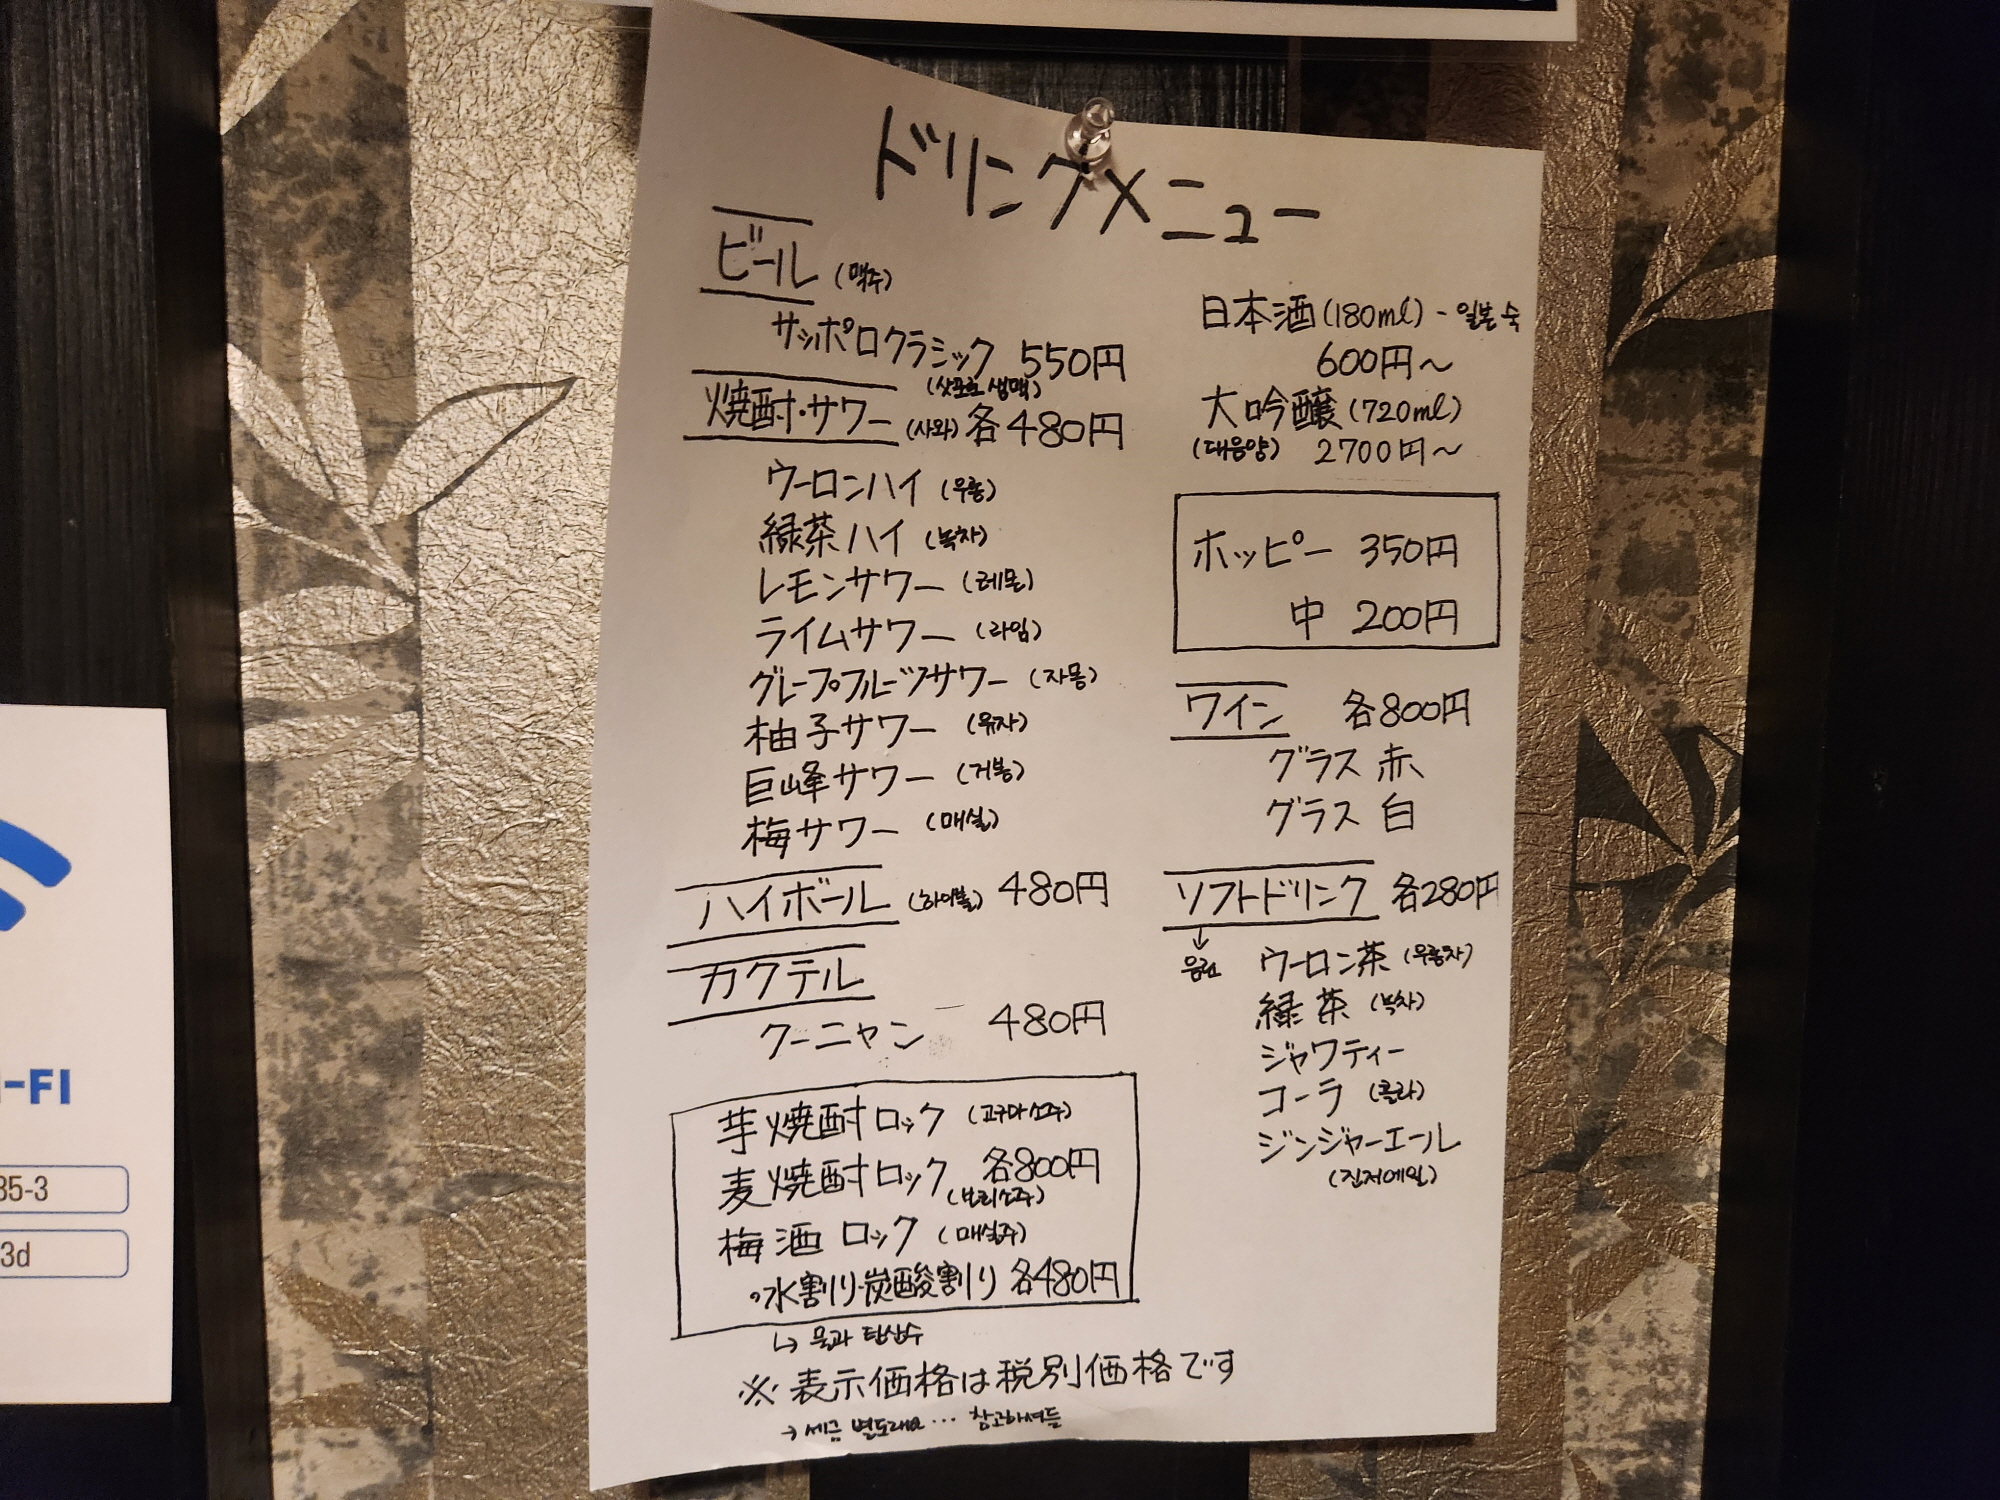 ドリンクメニュー
ビール (맥주)
サッポロクラシック 550円
(삿포로 생맥)
焼酎・サワー (사와) 各480円
ウーロンハイ (우롱)
緑茶ハイ (녹차)
レモンサワー (레몬)
ライムサワー (라임)
グレープフルーツサワー (자몽)
柚子サワー (유자)
巨峰サワー (거봉)
梅サワー (매실)
ハイボール (하이볼) 480円
カクテル
クーニャン 480円
芋焼酎ロック (고구마소주)
麦焼酎ロック 各800円
(보리소주)
梅酒ロック (매실주)
・水割り・炭酸割り 各480円
↳ 물과 탄산수
※ 表示価格は税別価格です
→ 세금 별도래요… 참고하셔들
日本酒(180ml) - 일본 술
600円～
大吟醸(720ml)
(대음양) 2700円～
ホッピー 350円
中 200円
ワイン 各800円
グラス 赤
グラス 白
ソフトドリンク 各280円
↓
음료
ウーロン茶 (우롱차)
緑茶 (녹차)
ジャワティー
コーラ (콜라)
ジンジャーエール
(진저에일)
-FI
35-3
3d